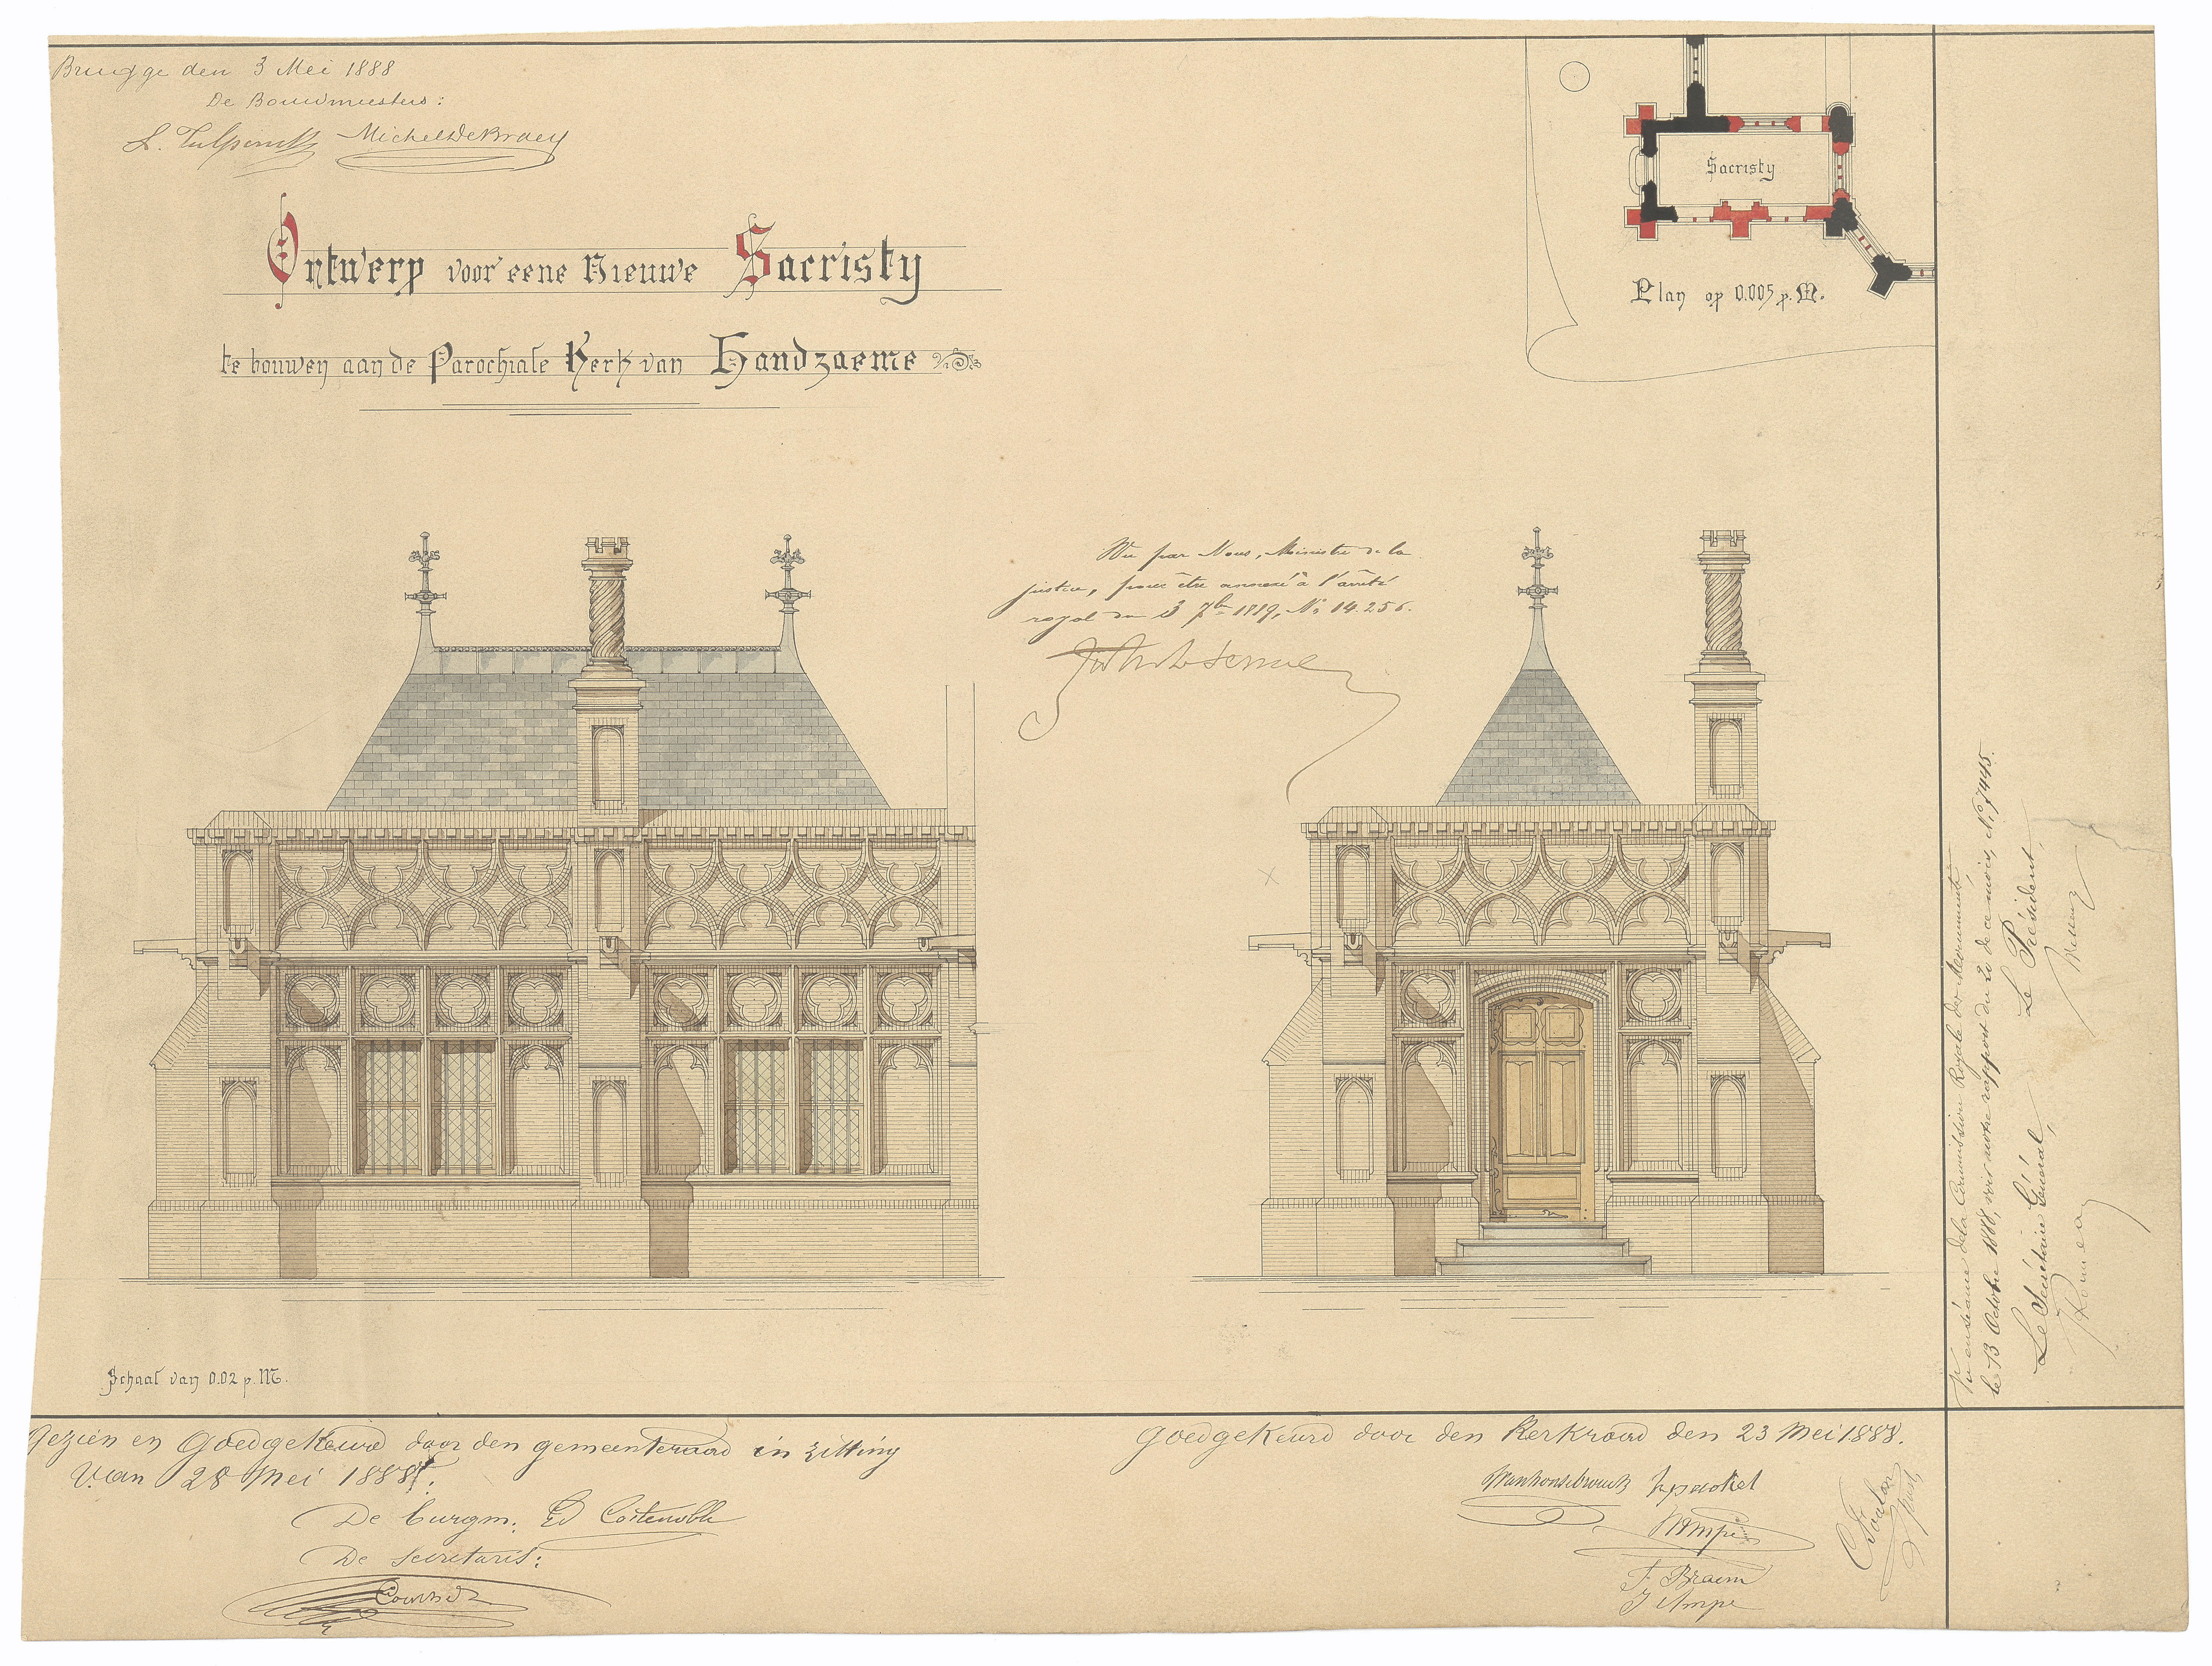 Brugge den 3 Mei 1888
De Bouwmeesters:
Michel De Braey
Ontwerp voor eene Nieuwe Sacristy
te bouwen aan de Parochiale Kerk van Handzaeme
Sacristy
Plan op 0.005 p. M.
Vu par Nous, Ministre de la
justice, pour être annexé à l'arrêté
royal du 3 7bre 1889, No 14.256.
Vu en séance de la Commission Royale des Monuments,
le 13 Octobre 1888, voir notre rapport du 20 de ce mois, No 7445.
Le Secrétaire Général,
Le Président,
Schaal van 0.02 p. M.
Gezien en Goedgekeurd door den gemeenteraad in zitting
van 28 Mei 1888.
De burgm: Ed Costenoble
De secretaris:
Goedgekeurd door den Kerkraad den 23 Mei 1888.
F. Braem
J Ampe